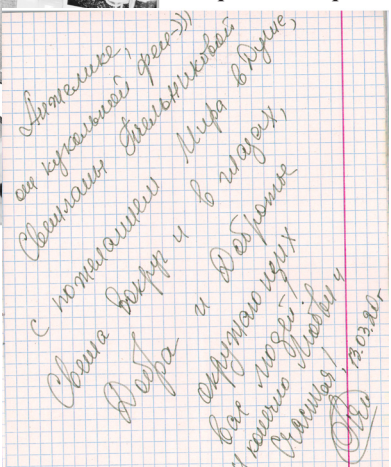 Анжелике,
от кукольной феи-)))
Светланы Пчельниковой
с пожеланием Мира в Душе,
Света вокруг и в глазах,
Добра и Доброты
окружающих
вас людей!
и конечно Любви и
Счастья!
13.03.20г.